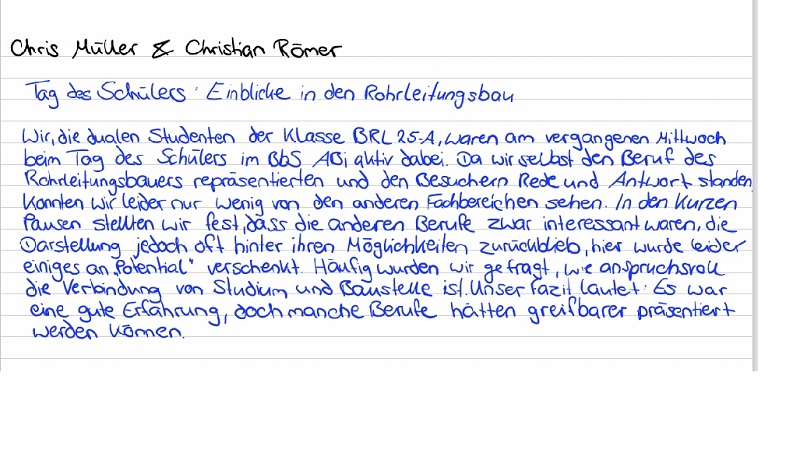 Chris Müller & Christian Römer
Tag des Schülers: Einblicke in den Rohrleitungsbau
Wir, die dualen Studenten der Klasse BRL 25-A, waren am vergangenen Mittwoch
beim Tag des Schülers im BbS ABi aktiv dabei. Da wir selbst den Beruf des
Rohrleitungsbauers repräsentierten und den Besuchern Rede und Antwort standen,
konnten wir leider nur wenig von den anderen Fachbereichen sehen. In den kurzen
Pausen stellten wir fest, dass die anderen Berufe zwar interessant waren, die
Darstellung jedoch oft hinter ihren Möglichkeiten zurückblieb, hier wurde leider
einiges an „Potential“ verschenkt. Häufig wurden wir gefragt, wie anspruchsvoll
die Verbindung von Studium und Baustelle ist. Unser Fazit lautet: Es war
eine gute Erfahrung, doch manche Berufe hätten greifbarer präsentiert
werden können.